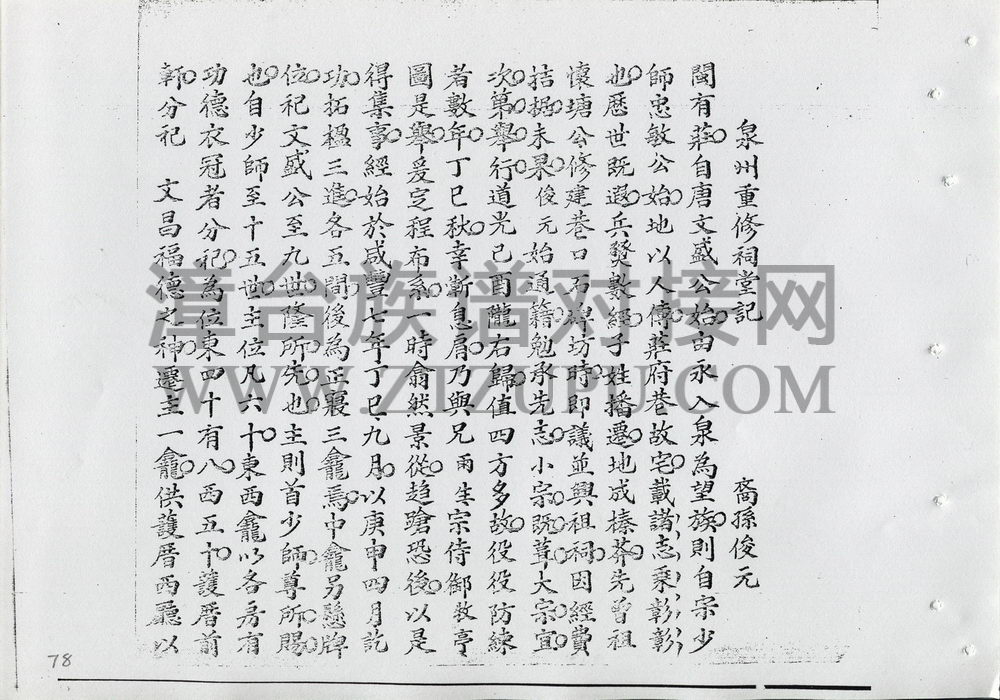 泉州重修祠堂記 裔孫俊元
閩有莊自唐文盛公始由永入泉為望族則自宗少
師忠敏公始地以人傳莊府巷故宅載諸志乘彰彰
也歷世既遐兵發數經子姓播遷地成榛莽先曾祖
懷塘公修建巷口石碍坊時即議並興祖祠因經費
拮据未果俊元始通籍勉承先志小宗既葺大宗宜
次第舉行道光己酉隴右歸值四方多故役役防練
者數年丁巳秋幸漸息肩乃與兄雨生宗侍御牧亭
圖是舉爰定程布系一時翕然景從趨蹌恐後以是
得集事經始於咸豐七年丁巳九月以庚申四月訖
功拓楹三進各五間後為正寢三龕焉中龕另懸牌
位祀文盛公至九世隆所先也主則首少師尊所賜
也自少師至十五世主位凡六十東西龕以各房有
功德衣冠者分祀為位東四十有八西五十護厝前
軒分祀 文昌福德之神遷主一龕供護厝西廳以
78
漳台族谱对接网
WWW.ZTZUPU.COM